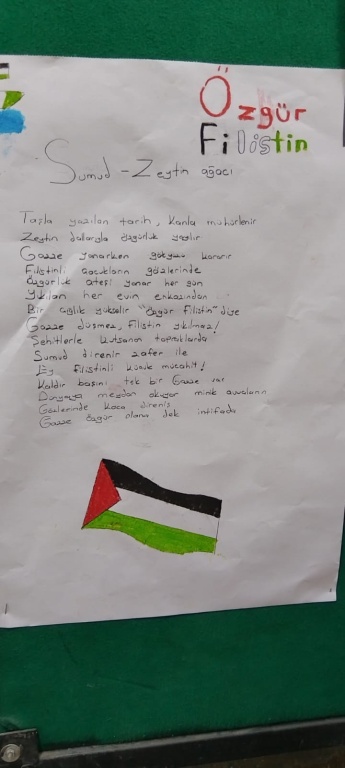 Özgür
Filistin
Sumud - Zeytin ağacı
Taşla yazılan tarih, kanla mühürlenir
Zeytin dallarıyla özgürlük yeşerir
Gazze yanarken gökyüzü kararır
Filistinli çocukların gözlerinde
Özgürlük ateşi yanar her gün
Yıkılan her evin enkazından
Bir çığlık yükselir "Özgür Filistin" diye
Gazze düşmez, Filistin yıkılmaz!
Şehitlerle kutsanan topraklarda
Sumud direnir zafer ile
Ey filistinli küçük mücahit!
Kaldır başını tek bir Gazze var
Dünyaya meydan okuyor minik avuçların
Gözlerinde koca direniş
Gazze özgür olana dek intifada